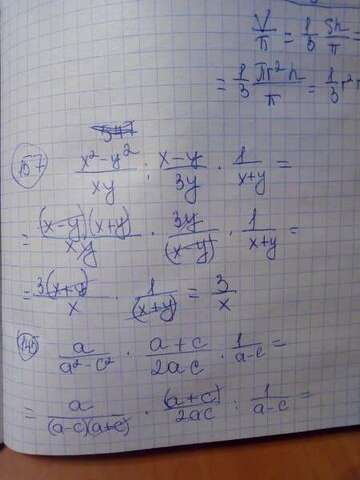 V/π = 1/3 Sh/π =
= 1/3 πr²h/π = 1/3 r²
157 x²-y²/xy : x-y/3y · 1/x+y =
= (x-y)(x+y)/xy · 3y/(x-y) · 1/x+y =
= 3(x+y)/x · 1/(x+y) = 3/x
a/a²-c² · a+c/2ac · 1/a-c =
= a/(a-c)(a+c) · (a+c)/2ac : 1/a-c =